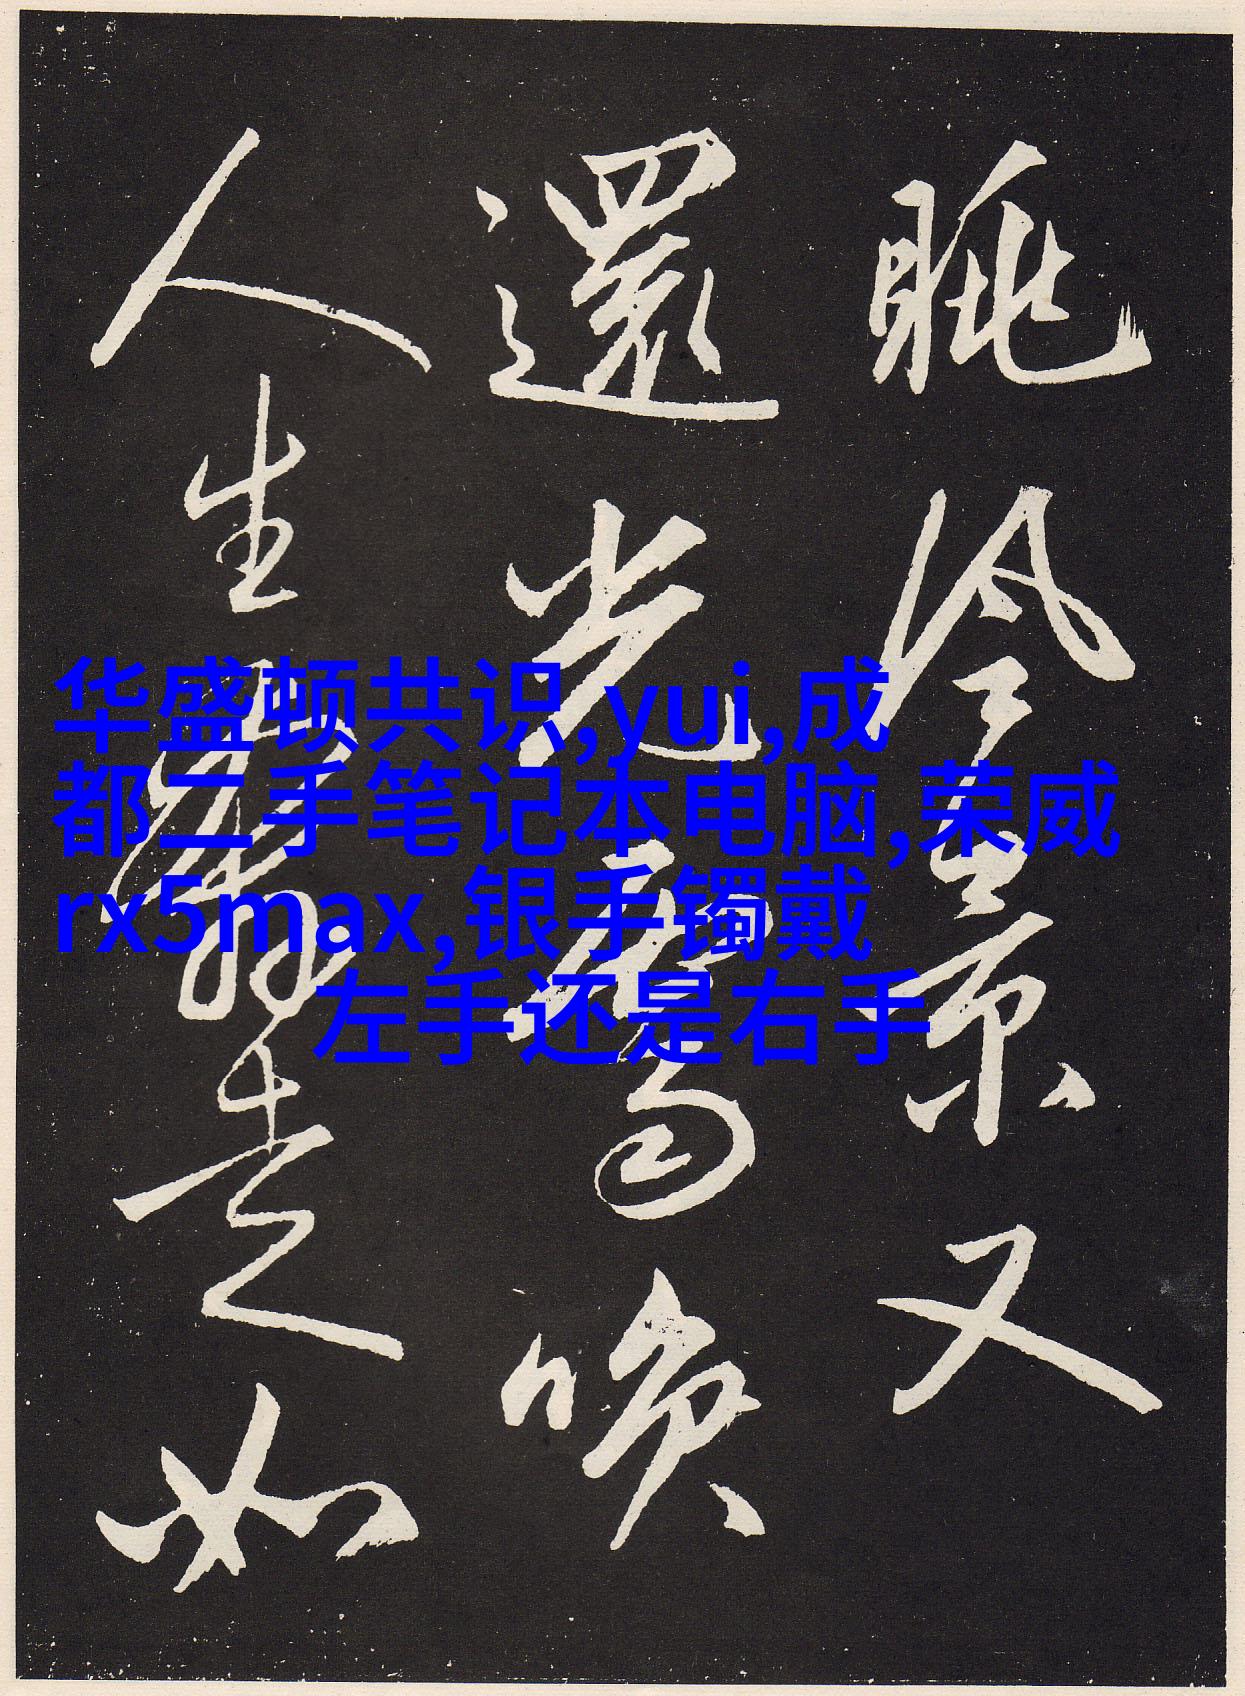 眺冷景又
還光電喚
人生羇走如
华盛顿共识,yui,成
都二手笔记本电脑,荣威
rx5max,银手镯戴
左手还是右手